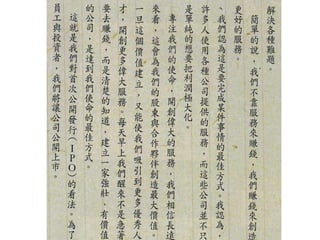 解決各種難題。
簡單的說,我們不靠服務來賺錢,我們賺錢來創造
更好的服務
、我們認為這是要完成某件事情的最佳方式。我認為,
許多人使用各種公司提供的服務,而這些公司並不只
是單純的想要把利潤極大化。
專注我們的使命,開創偉大的服務,我們相信長遠
來看,這會為我們的股東與合作夥伴創造最大價值。
一旦這個價值建立,又能使我們吸引到更多優秀人
才,開創更多偉大服務。每天早上我們醒來不是急著
要去賺錢,而是清楚的知道,建立一家強壯、有價值
的公司,是達到我們使命的最佳方式。
這就是我們對首次公開發行(IPO)的看法。為了
員工與投資者,我們將讓公司公開上市。